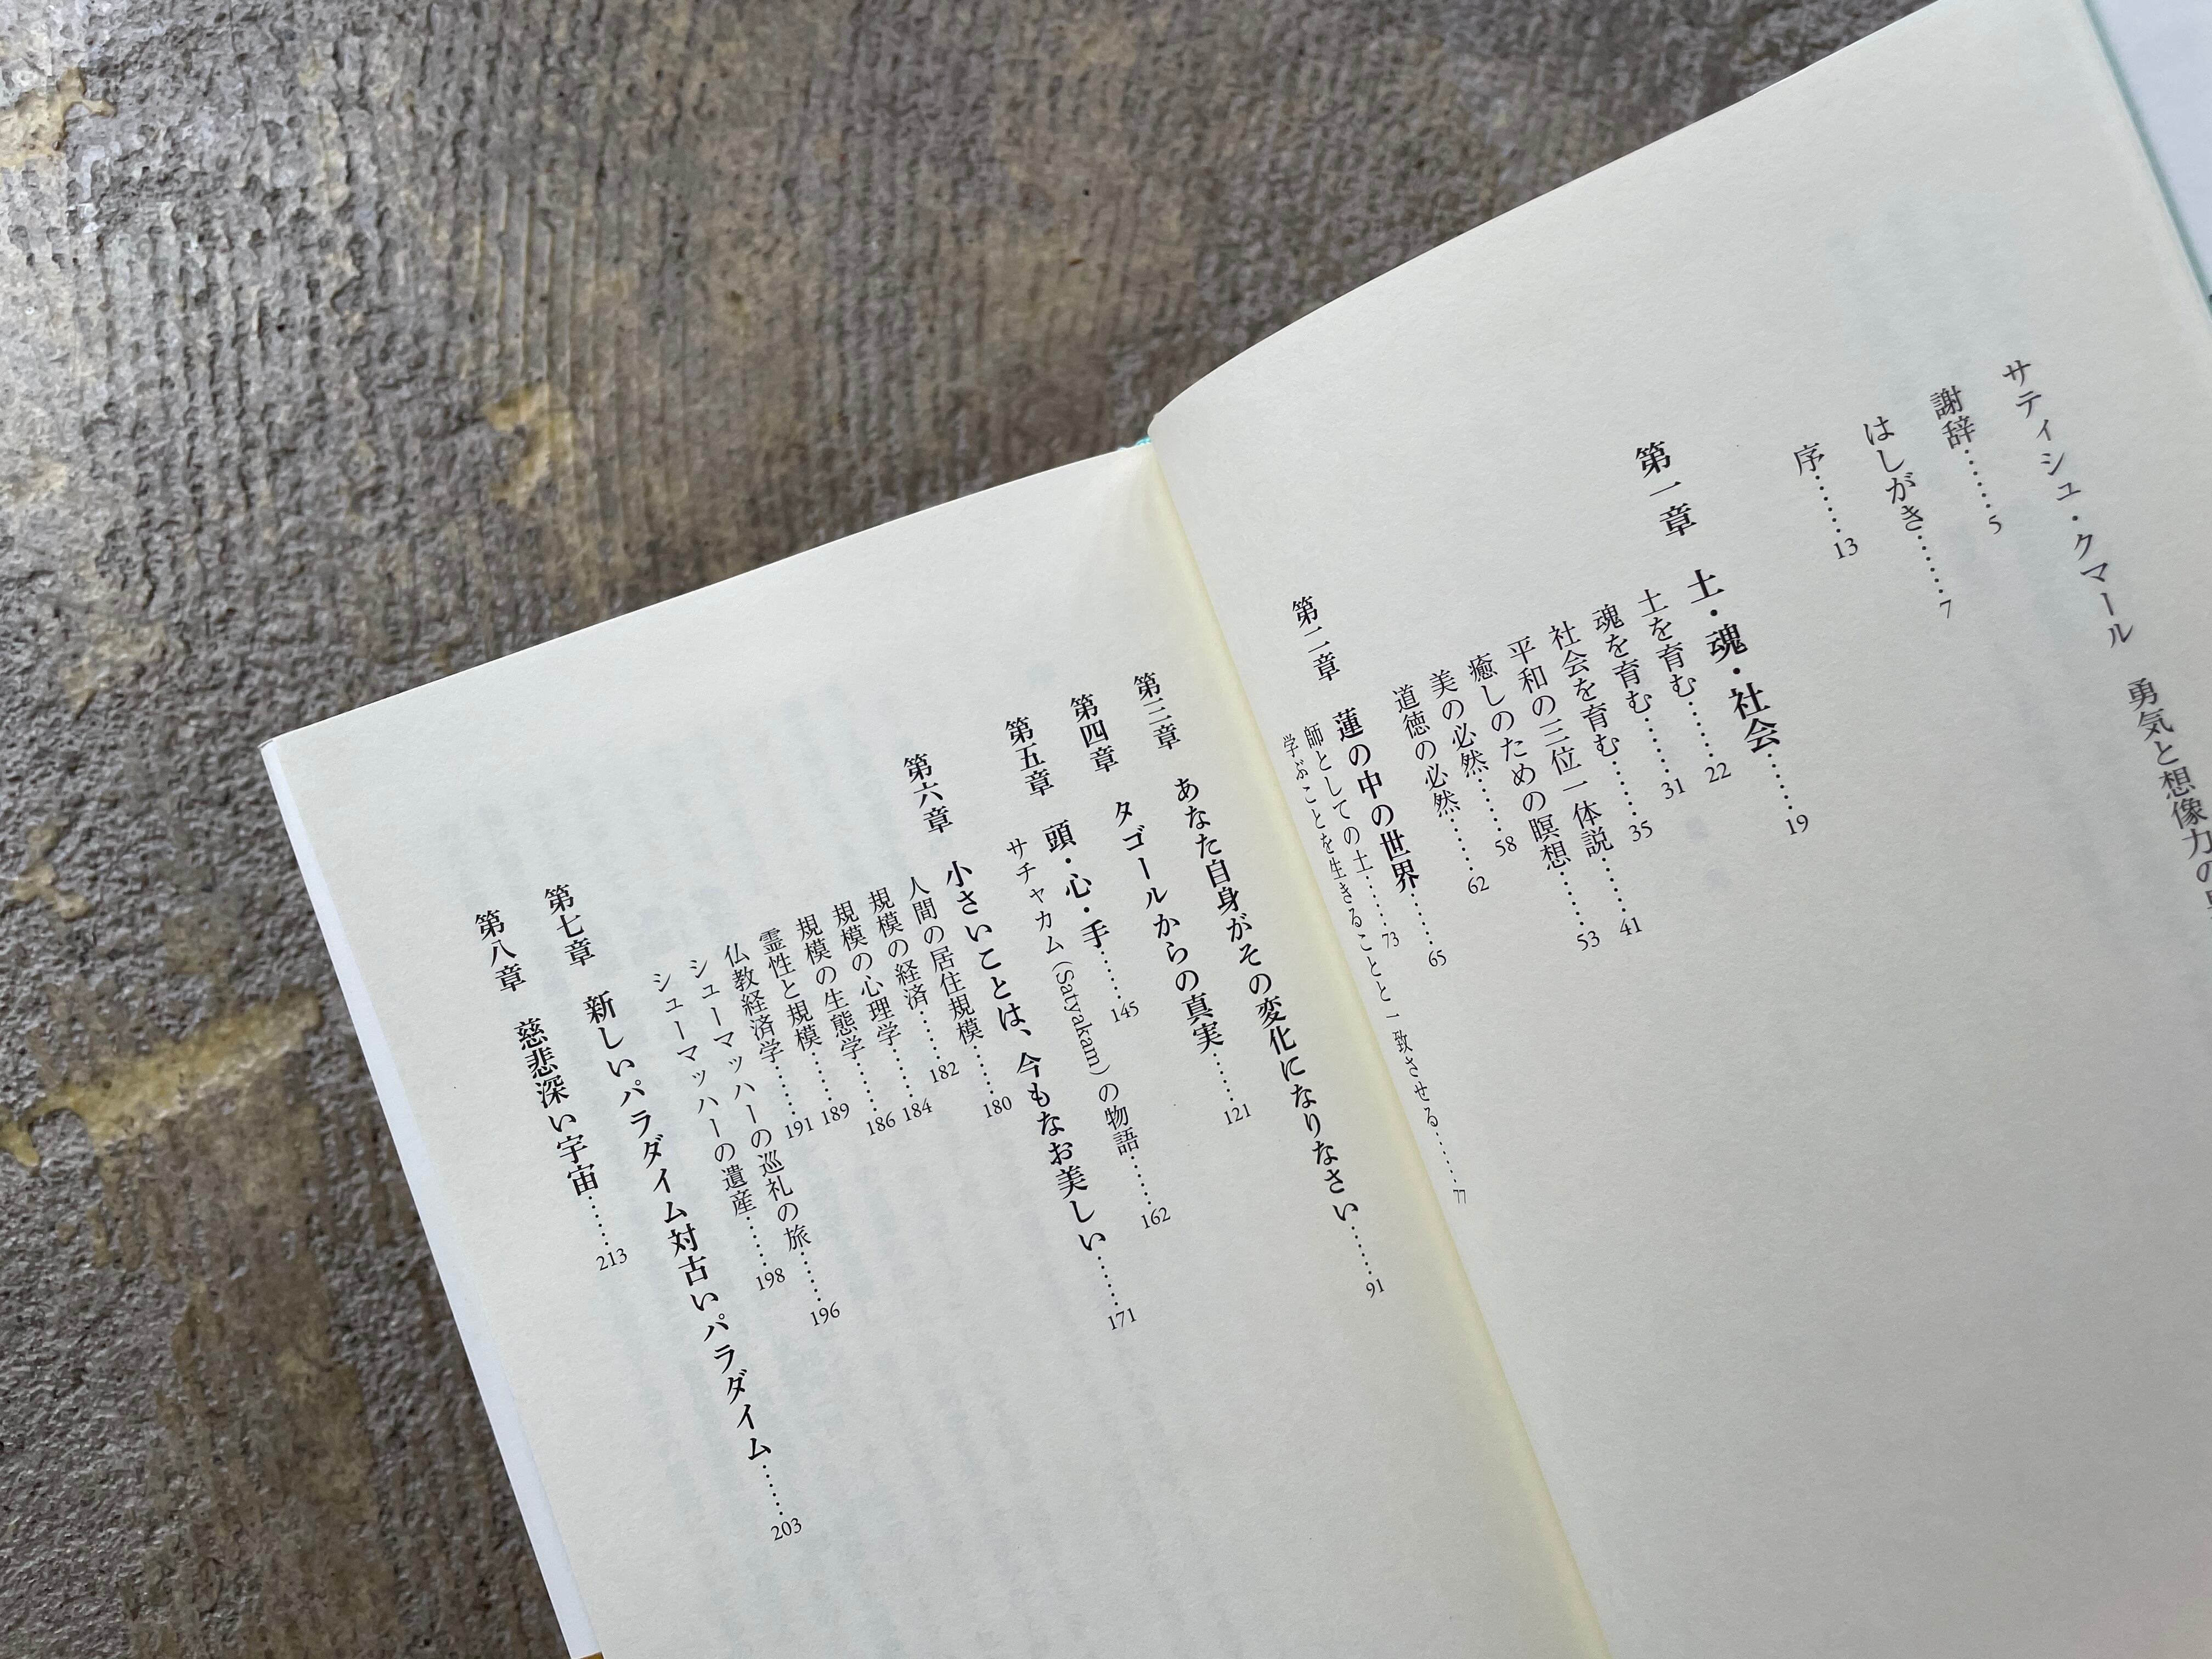 サティシュ・クマール　勇気と想像力の
謝辞……5
はしがき……7
序……13
第一章　土・魂・社会……19
土を育む……22
魂を育む……31
社会を育む……35
平和の三位一体説……41
癒しのための瞑想……53
美の必然……58
道徳の必然……62
第二章　蓮の中の世界……65
師としての土……73
学ぶことを生きることと一致させる……77
第三章　あなた自身がその変化になりなさい……91
第四章　タゴールからの真実……121
第五章　頭・心・手……145
サチャカム（Satyakam）の物語……162
第六章　小さいことは、今もなお美しい……171
人間の居住規模……180
規模の経済……182
規模の心理学……184
規模の生態学……186
霊性と規模……189
仏教経済学……191
シューマッハーの巡礼の旅……196
シューマッハーの遺産……198
第七章　新しいパラダイム対古いパラダイム……203
第八章　慈悲深い宇宙……213